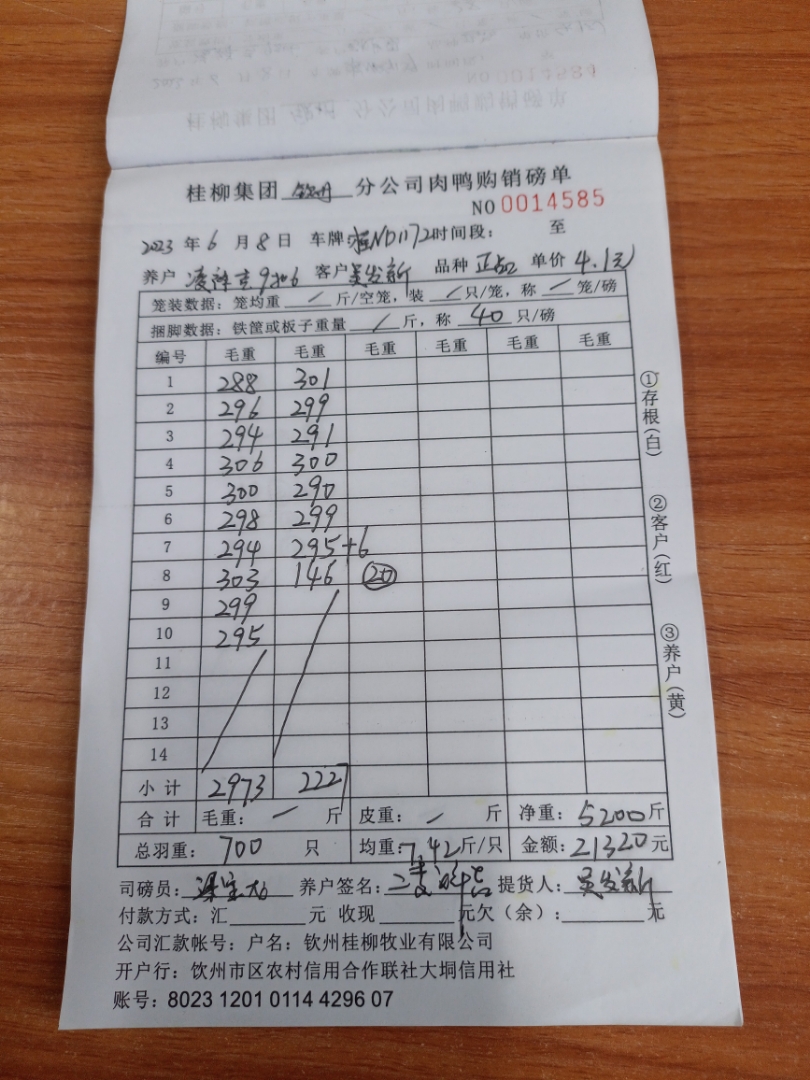 桂柳集团 钦州 分公司肉鸭购销磅单
NO 0014585
2023 年 6 月 8 日 车牌 桂ND1172 时间段： 至
养户 客户 吴发新 品种 正品 单价 4.1元
笼装数据：笼均重 / 斤/空笼，装 / 只/笼，称 / 笼/磅
捆脚数据：铁篦或板子重量 / 斤，称 40 只/磅
编号 毛重 毛重 毛重 毛重 毛重 毛重
1 288 301
2 296 299
3 294 291
4 306 300
5 300 290
6 298 299
7 294 295+6
8 303 146 20
9 299
10 295
11
12
13
14
小计 2973 2227
合计 毛重： — 斤 皮重： — 斤 净重： 5200 斤
总羽重： 700 只 均重： 7.42 斤/只 金额： 21320 元
司磅员： 养户签名： 提货人： 吴发新
付款方式：汇 元 收现 元欠（余）： 元
公司汇款帐号：户名：钦州桂柳牧业有限公司
开户行：钦州市区农村信用合作联社大垌信用社
账号：8023 1201 0114 4296 07
①存根（白）
②客户（红）
③养户（黄）